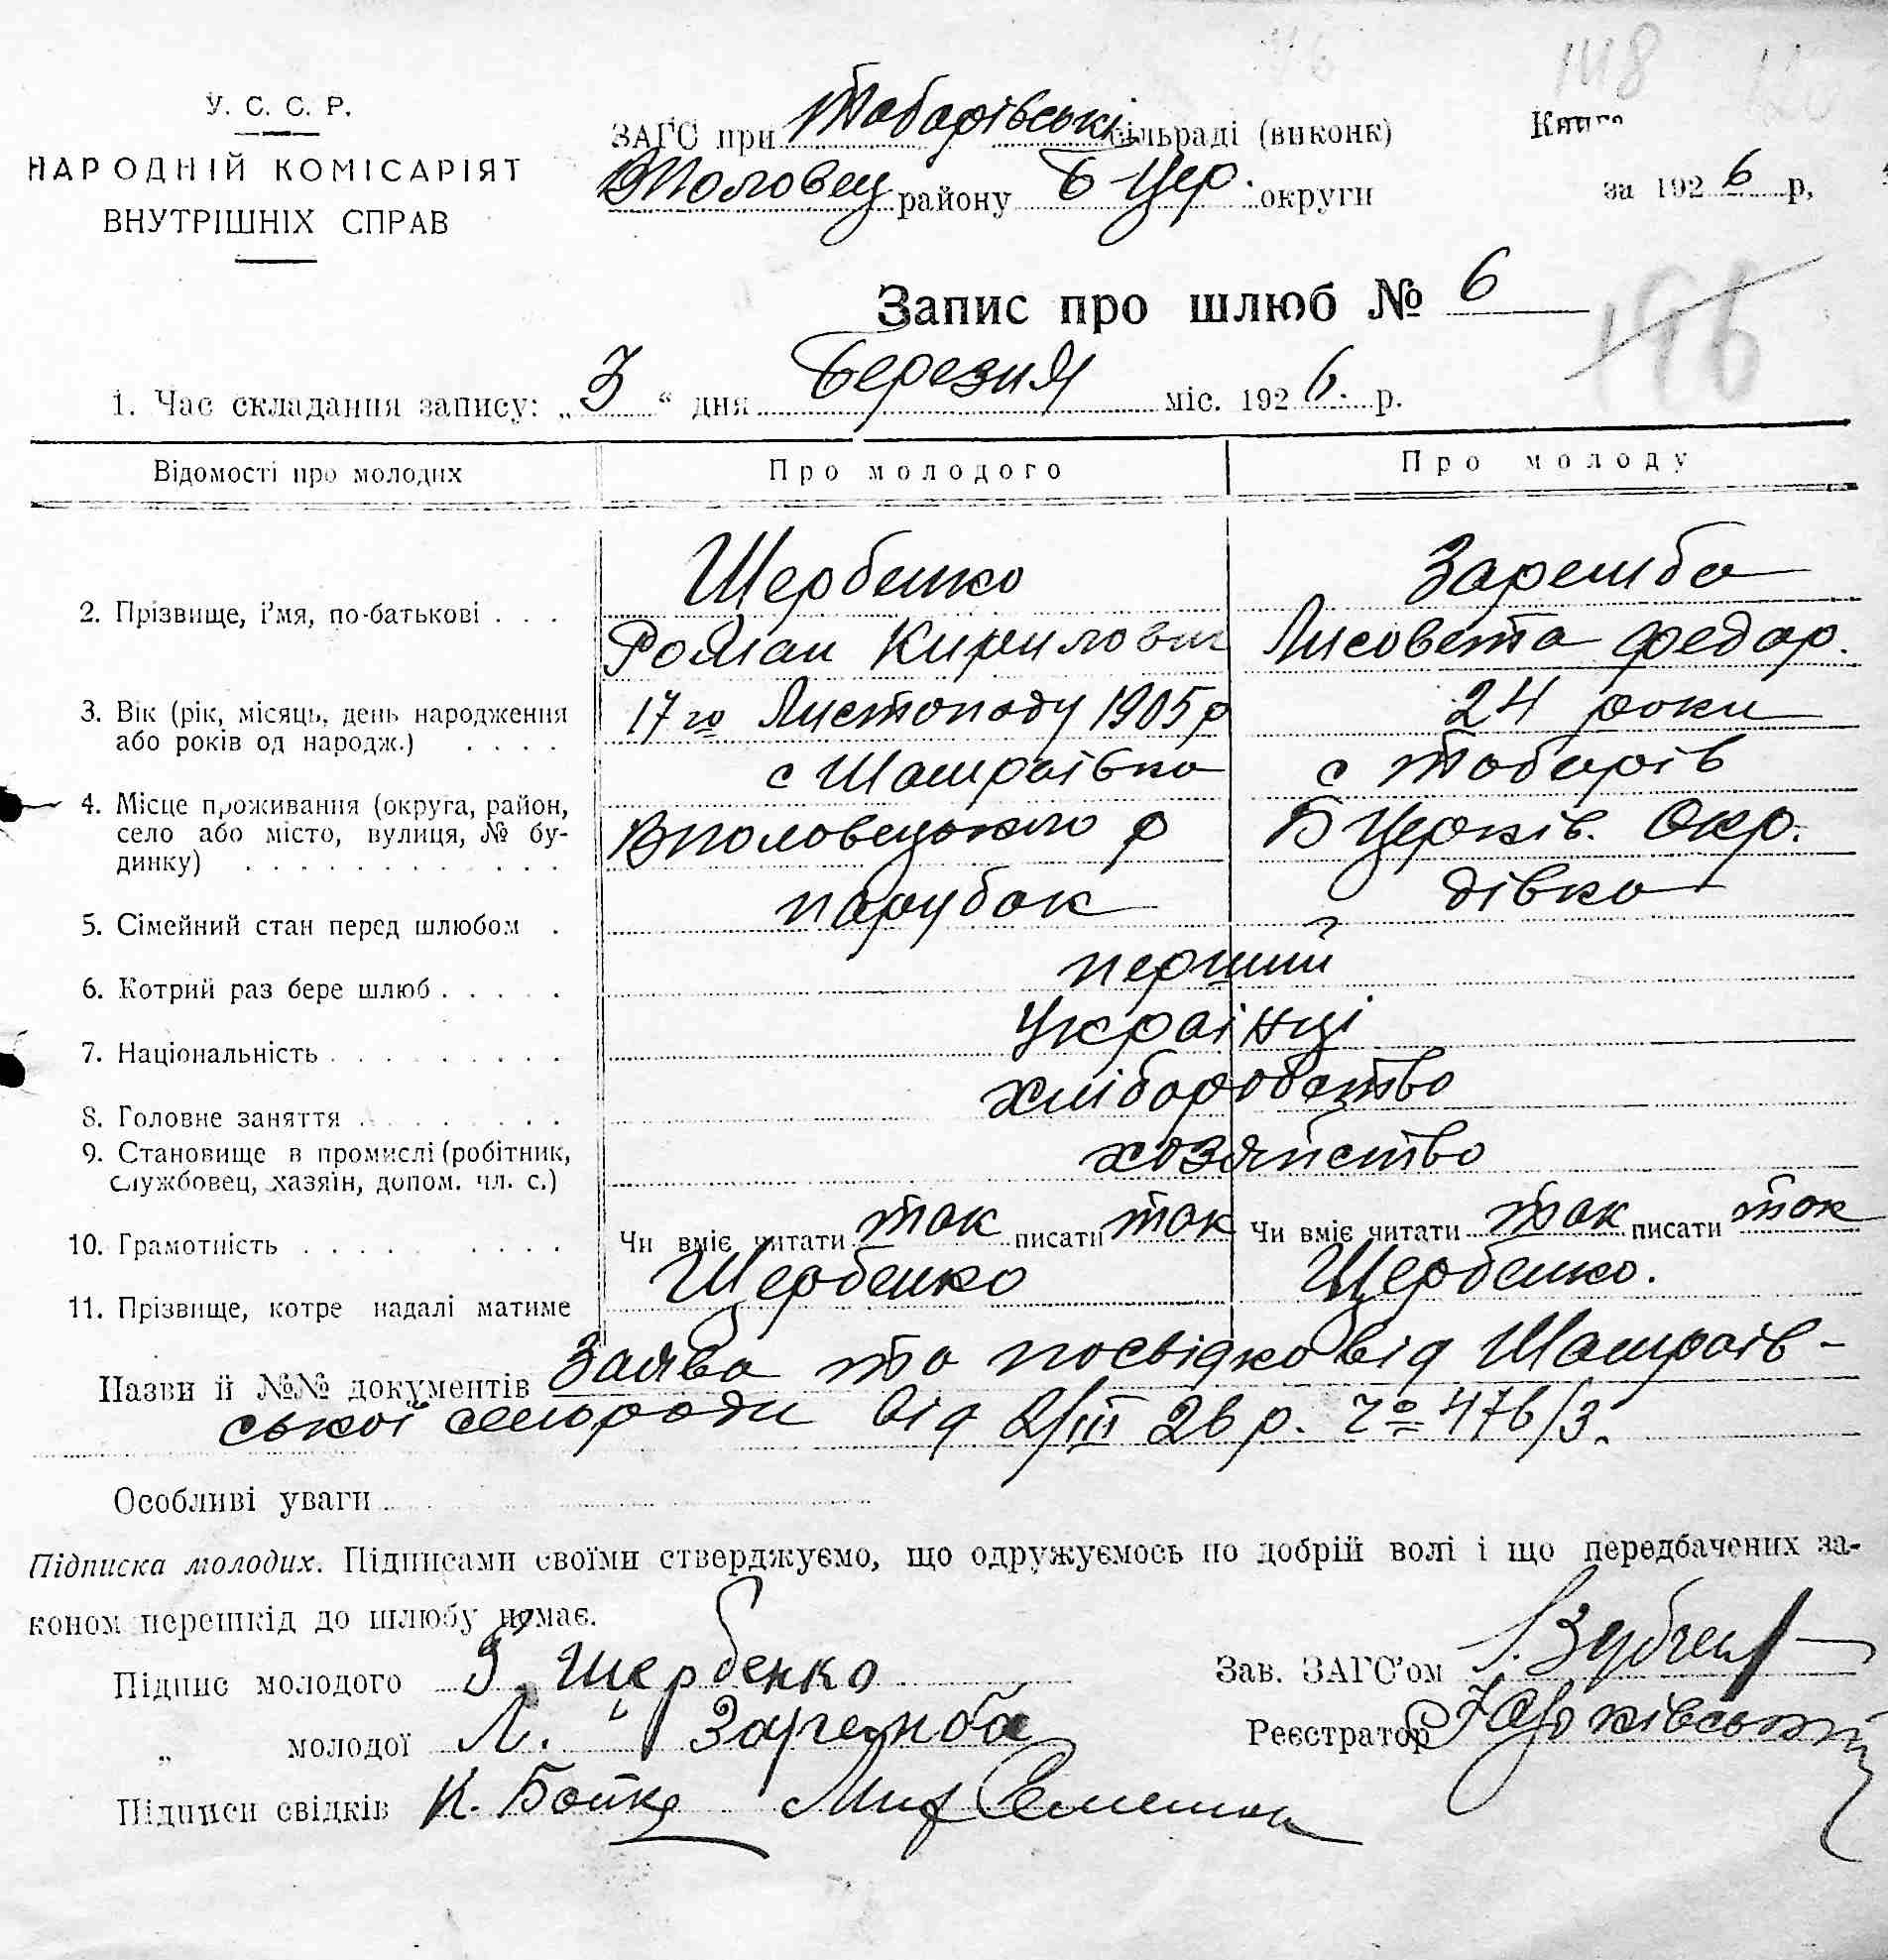 У. С. С. Р.
НАРОДНІЙ КОМІСАРІЯТ
ВНУТРІШНІХ СПРАВ
118
ЗАГС при Тобарівські сільраді (виконк)
Книга
ВПоловец району Б Цер. округи
за 1926 р,
Запис про шлюб № 6
196
1. Час складання запису: „3“ дня Березня міс. 1926. р.
Відомості про молодих
Про молодого
Про молоду
2. Прізвище, і'мя, по-батькові . . .
Щербенко
Роман Кирилович
Заремба
Лисовета Федор.
3. Вік (рік, місяць, день народження
або років од народж.) . . . .
17го Листопаду 1905 р
24 роки
4. Місце проживання (округа, район,
село або місто, вулиця, № бу-
динку) . . . . . . . . . . . .
с Шамраівка
ВПоловецького р
с Тобарів
БЦерків. Окр.
5. Сімейний стан перед шлюбом .
парубок
дівка
6. Котрий раз бере шлюб . . . . .
перший
7. Національність . . . . . . . . .
Українці
8. Головне заняття . . . . . . . .
хліборобство
9. Становище в промислі (робітник,
службовец, хазяін, допом. чл. с.)
хозяйство
10. Грамотність . . . . . . . . . .
Чи вміє читати так писати так
Чи вміє читати так писати так
11. Прізвище, котре надалі матиме
Щербенко
Щербенко.
Назви й №№ документів Заява та посвідка від Шамраів-
ської сельради від 2/III 26 р. чо 476/3.
Особливі уваги
Підписка молодих. Підписами своїми стверджуємо, що одружуємось по добрій волі і що передбачених за-
коном перешкід до шлюбу немає.
Підпис молодого Щербенко
Зав. ЗАГС'ом
„ молодої Л. Заремба
Реєстратор
Підписи свідків К. Бойко